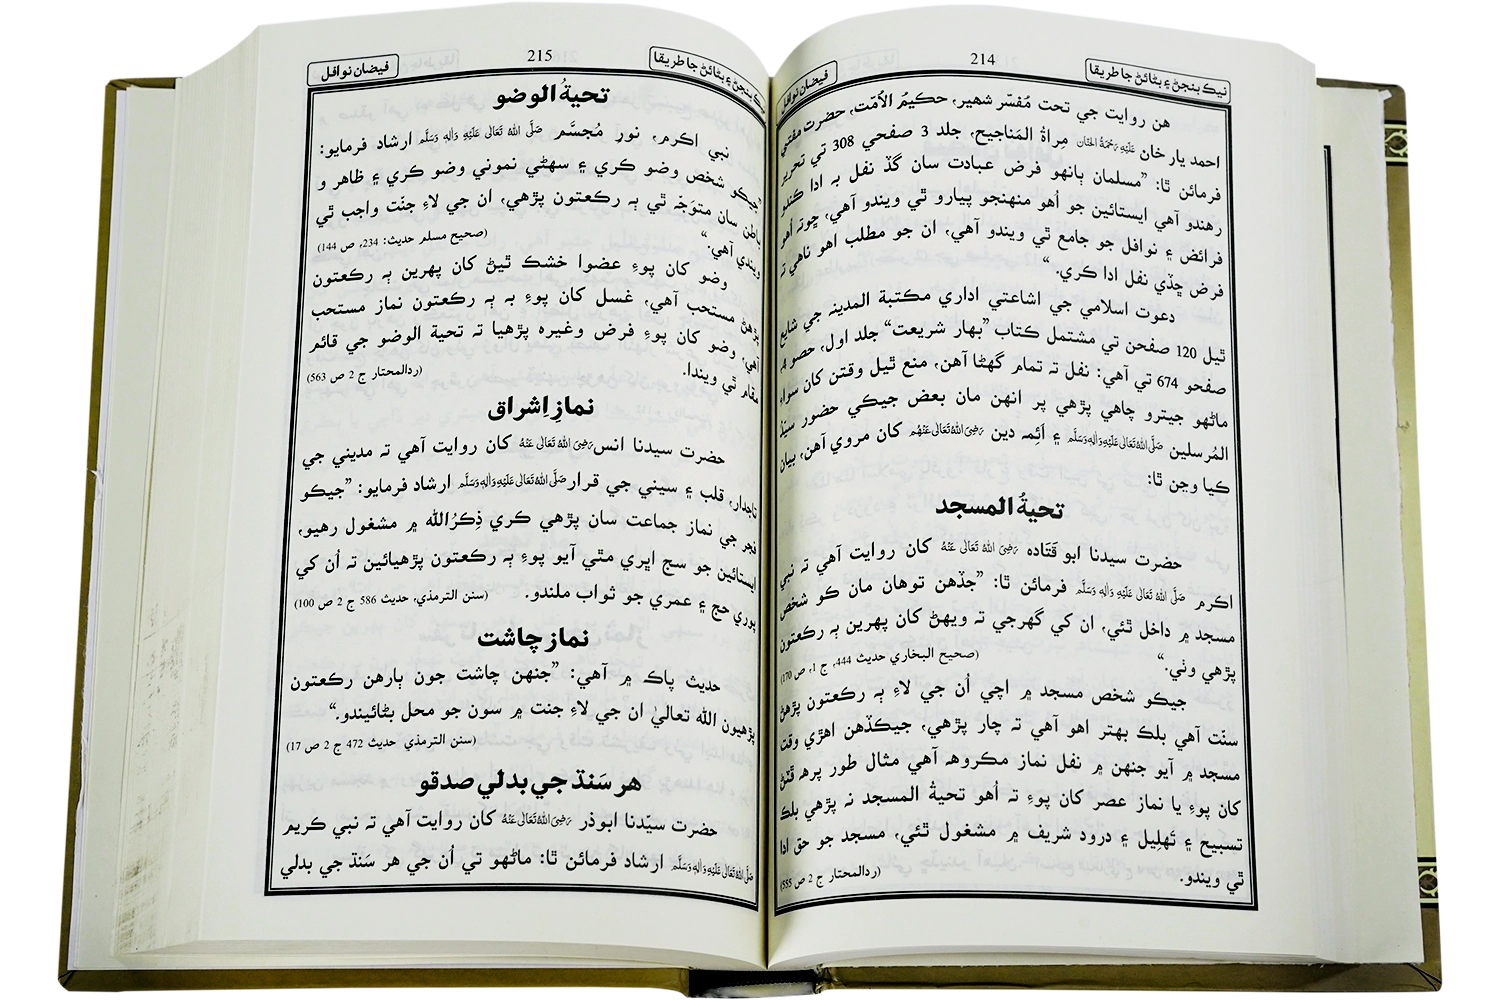 نيڪ بنجڻ ۽ بڻائڻ جا طريقا
214
فيضان نوافل
هن روايت جي تحت مُفسّر شهير، حڪيمُ الاُمّت، حضرت مفتي
احمد يار خان عَلَيْهِ رَحْمَةُ الْحَنَّان مِراةُ المَناجيح، جلد 3 صفحي 308 تي تحرير
فرمائن ٿا: ”مسلمان ٻانهو فرض عبادت سان گڏ نفل به ادا ڪندو
رهندو آهي ايستائين جو اُهو منهنجو پيارو ٿي ويندو آهي، ڇوته اُهو
فرائض ۽ نوافل جو جامع ٿي ويندو آهي، ان جو مطلب اهو ناهي ته
فرض ڇڏي نفل ادا ڪري.“
دعوت اسلامي جي اشاعتي اداري مڪتبة المدينه جي شايع
ٿيل 120 صفحن تي مشتمل ڪتاب ”بهار شريعت“ جلد اول، حصو 4،
صفحو 674 تي آهي: نفل ته تمام گهڻا آهن، منع ٿيل وقتن کان سواءِ
ماڻهو جيترو چاهي پڙهي پر انهن مان بعض جيڪي حضور سيدُ
المُرسلين صَلَّى اللهُ تَعَالٰى عَلَيْهِ وَاٰلِهٖ وَسَلَّم ۽ اَئِمه دين رَضِیَ اللهُ تَعَالٰى عَنْهُم کان مروي آهن، بيان
ڪيا وڃن ٿا:
تحيةُ المسجد
حضرت سيدنا ابو قَتَاده رَضِیَ اللهُ تَعَالٰى عَنْهُ کان روايت آهي ته نبي
اڪرم صَلَّى اللهُ تَعَالٰى عَلَيْهِ وَاٰلِهٖ وَسَلَّم فرمائن ٿا: ”جڏهن توهان مان ڪو شخص
مسجد ۾ داخل ٿئي، ان کي گهرجي ته ويهڻ کان پهرين ٻه رڪعتون
پڙهي وٺي.“ (صحيح البخاري حديث 444، ج 1، ص 170)
جيڪو شخص مسجد ۾ اچي اُن جي لاءِ ٻه رڪعتون پڙهڻ
سنّت آهي بلڪ بهتر اهو آهي ته چار پڙهي، جيڪڏهن اهڙي وقت
مسجد ۾ آيو جنهن ۾ نفل نماز مڪروهه آهي مثال طور پرهه ڦٽڻ
کان پوءِ يا نماز عصر کان پوءِ ته اُهو تحيةُ المسجد نه پڙهي بلڪ
تسبيح ۽ تَهليل ۽ درود شريف ۾ مشغول ٿئي، مسجد جو حق ادا
ٿي ويندو. (ردالمحتار ج 2 ص 555)
نيڪ بنجڻ ۽ بڻائڻ جا طريقا
215
فيضان نوافل
تحيةُ الوضو
نبي اڪرم، نورِ مُجسَّم صَلَّى اللهُ تَعَالٰى عَلَيْهِ وَاٰلِهٖ وَسَلَّم ارشاد فرمايو:
”جيڪو شخص وضو ڪري ۽ سهڻي نموني وضو ڪري ۽ ظاهر و
باطن سان متوَجّه ٿي ٻه رڪعتون پڙهي، ان جي لاءِ جنّت واجب ٿي
ويندي آهي.“ (صحيح مسلم حديث: 234، ص 144)
وضو کان پوءِ عضوا خشڪ ٿيڻ کان پهرين ٻه رڪعتون
پڙهڻ مستحب آهي، غسل کان پوءِ به ٻه رڪعتون نماز مستحب
آهي، وضو کان پوءِ فرض وغيره پڙهيا ته تحية الوضو جي قائم
مقام ٿي ويندا. (ردالمحتار ج 2 ص 563)
نمازِ اِشراق
حضرت سيدنا انس رَضِیَ اللهُ تَعَالٰى عَنْهُ کان روايت آهي ته مديني جي
تاجدار، قلب ۽ سيني جي قرار صَلَّى اللهُ تَعَالٰى عَلَيْهِ وَاٰلِهٖ وَسَلَّم ارشاد فرمايو: ”جيڪو
فجر جي نماز جماعت سان پڙهي ڪري ذِڪرُالله ۾ مشغول رهيو،
ايستائين جو سج اڀري مٿي آيو پوءِ ٻه رڪعتون پڙهيائين ته اُن کي
پوري حج ۽ عمري جو ثواب ملندو. (سنن الترمذي، حديث 586 ج 2 ص 100)
نماز چاشت
حديث پاڪ ۾ آهي: ”جنهن چاشت جون ٻارهن رڪعتون
پڙهيون الله تعاليٰ ان جي لاءِ جنت ۾ سون جو محل بڻائيندو.“
(سنن الترمذي حديث 472 ج 2 ص 17)
هر سَنڌ جي بدلي صدقو
حضرت سيّدنا ابوذر رَضِیَ اللهُ تَعَالٰى عَنْهُ کان روايت آهي ته نبي ڪريم
صَلَّى اللهُ تَعَالٰى عَلَيْهِ وَاٰلِهٖ وَسَلَّم ارشاد فرمائن ٿا: ماڻهو تي اُن جي هر سَنڌ جي بدلي